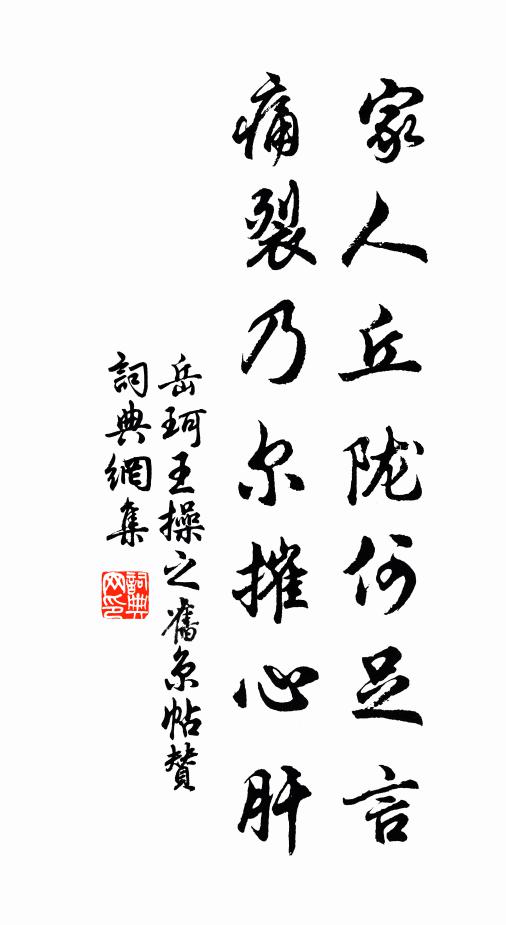 家人丘陇何足言
痛裂乃尔摧心肝
岳珂王操之舊京帖贊
詞典網集
詞典网印